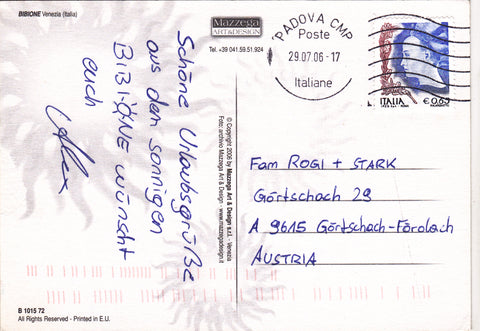 BIBIONE Venezia (Italia)
Mazzega
ART&DESIGN
Tel. +39 041.59.51.924
PADOVA CMP
Poste
29.07.06 - 17
Italiane
ITALIA
€ 0,65
Schöne Urlaubsgrüße
aus dem sonnigen
BIBIONE wünscht
euch
© Copyright 2006 by Mazzega Art & Design s.r.l. - Venezia
Foto: archivio Mazzega Art & Design - www.mazzegadesign.it
Fam ROGI + STARK
Görtschach 29
A 9615 Görtschach-Förolach
AUSTRIA
B 1015 72
All Rights Reserved - Printed in E.U.